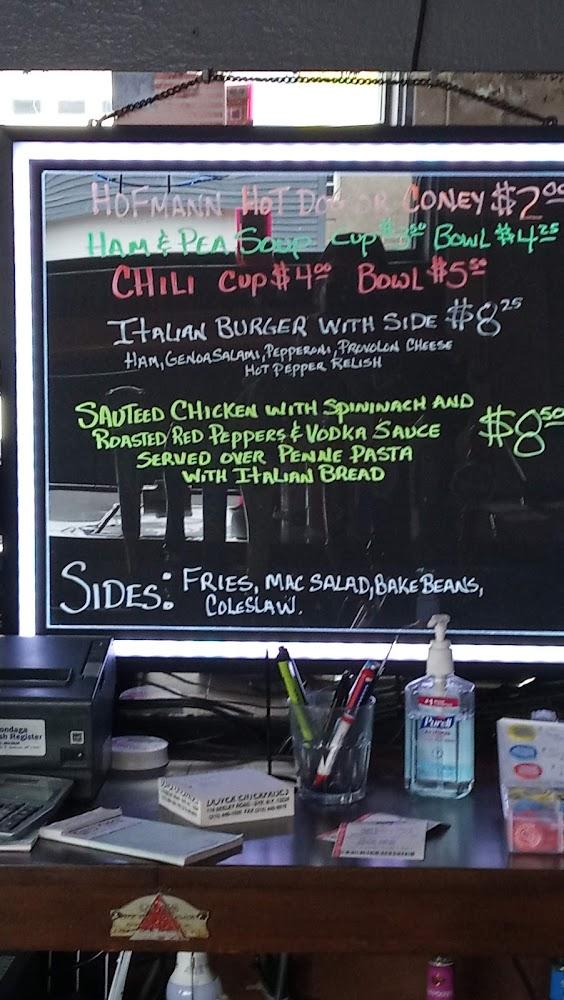 HOFMANN HOT DOG OR CONEY $2.00
HAM & PEA SOUP CUP BOWL $4.25
CHILI CUP $4.00 BOWL $5.50
ITALIAN BURGER WITH SIDE $8.25
HAM, GENOA SALAMI, PEPPERONI, PROVOLON CHEESE
HOT PEPPER RELISH
SAUTEED CHICKEN WITH SPININACH AND
ROASTED RED PEPPERS & VODKA SAUCE $8.50
SERVED OVER PENNE PASTA
WITH ITALIAN BREAD
SIDES: FRIES, MAC SALAD, BAKE BEANS,
COLESLAW.
Purell
Register